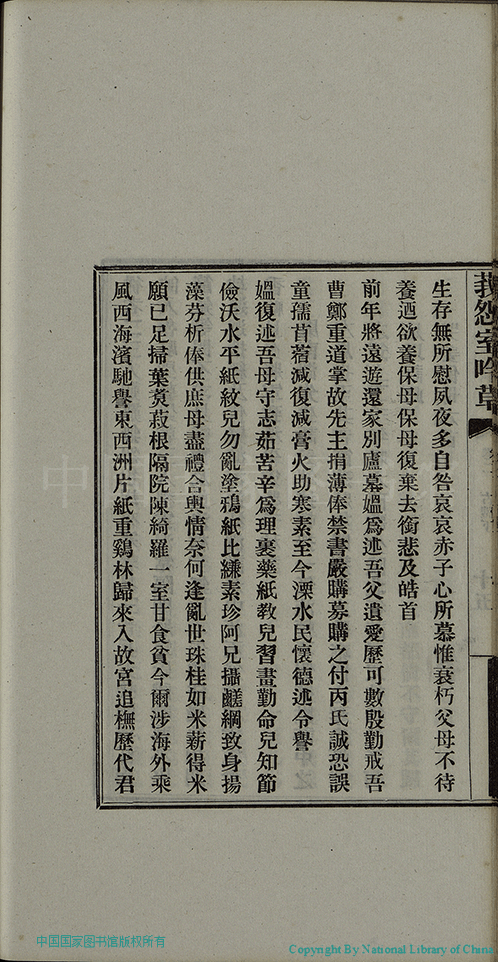 莪怨室吟草
生存無所慰夙夜多自咎哀哀赤子心所慕惟衰朽父母不待
養迺欲養保母保母復棄去銜悲及皓首
前年將遠遊還家別廬墓媼爲述吾父遺愛歷可數殷勤戒吾
曹鄭重道掌故先主捐薄俸禁書嚴購募購之付丙氏誠恐誤
童孺苜蓿減復減膏火助寒素至今溧水民懷德述令譽
媼復述吾母守志茹苦辛爲理裹藥紙教兒習畫勤命兒知節
儉沃水平紙紋兒勿亂塗鴉紙比縑素珍阿兄攝齹綱致身揚
藻芬析俸供庶母盡禮合輿情奈何逢亂世珠桂如米薪得米
願已足掃葉炱菽根隔院陳綺羅一室甘食貧今爾涉海外乘
風西海濱馳譽東西洲片紙重鷄林歸來入故宮追橅歷代君
中国国家图书馆版权所有
Copyright By National Library of China